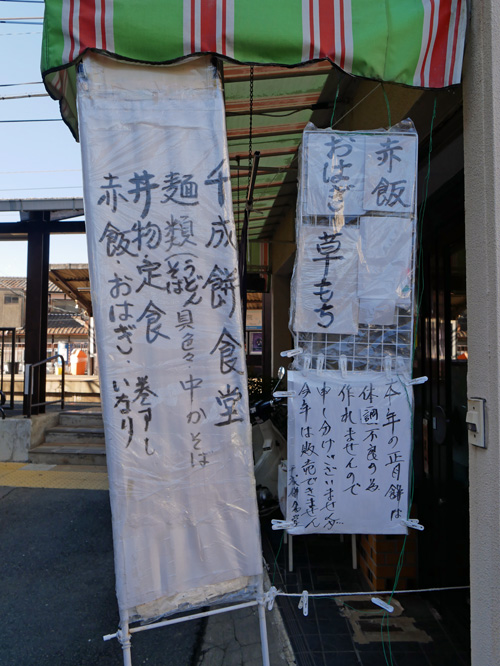 千成餅食堂
麺類(うどん そば)具色々・中かそば
丼物定食
赤飯 おはぎ・いなり 巻ずし
赤飯
おはぎ
草もち
本年の正月餅は
体調不良の為
作れませんので
申し分けございませんが
今年は販売できません
千成餅食堂